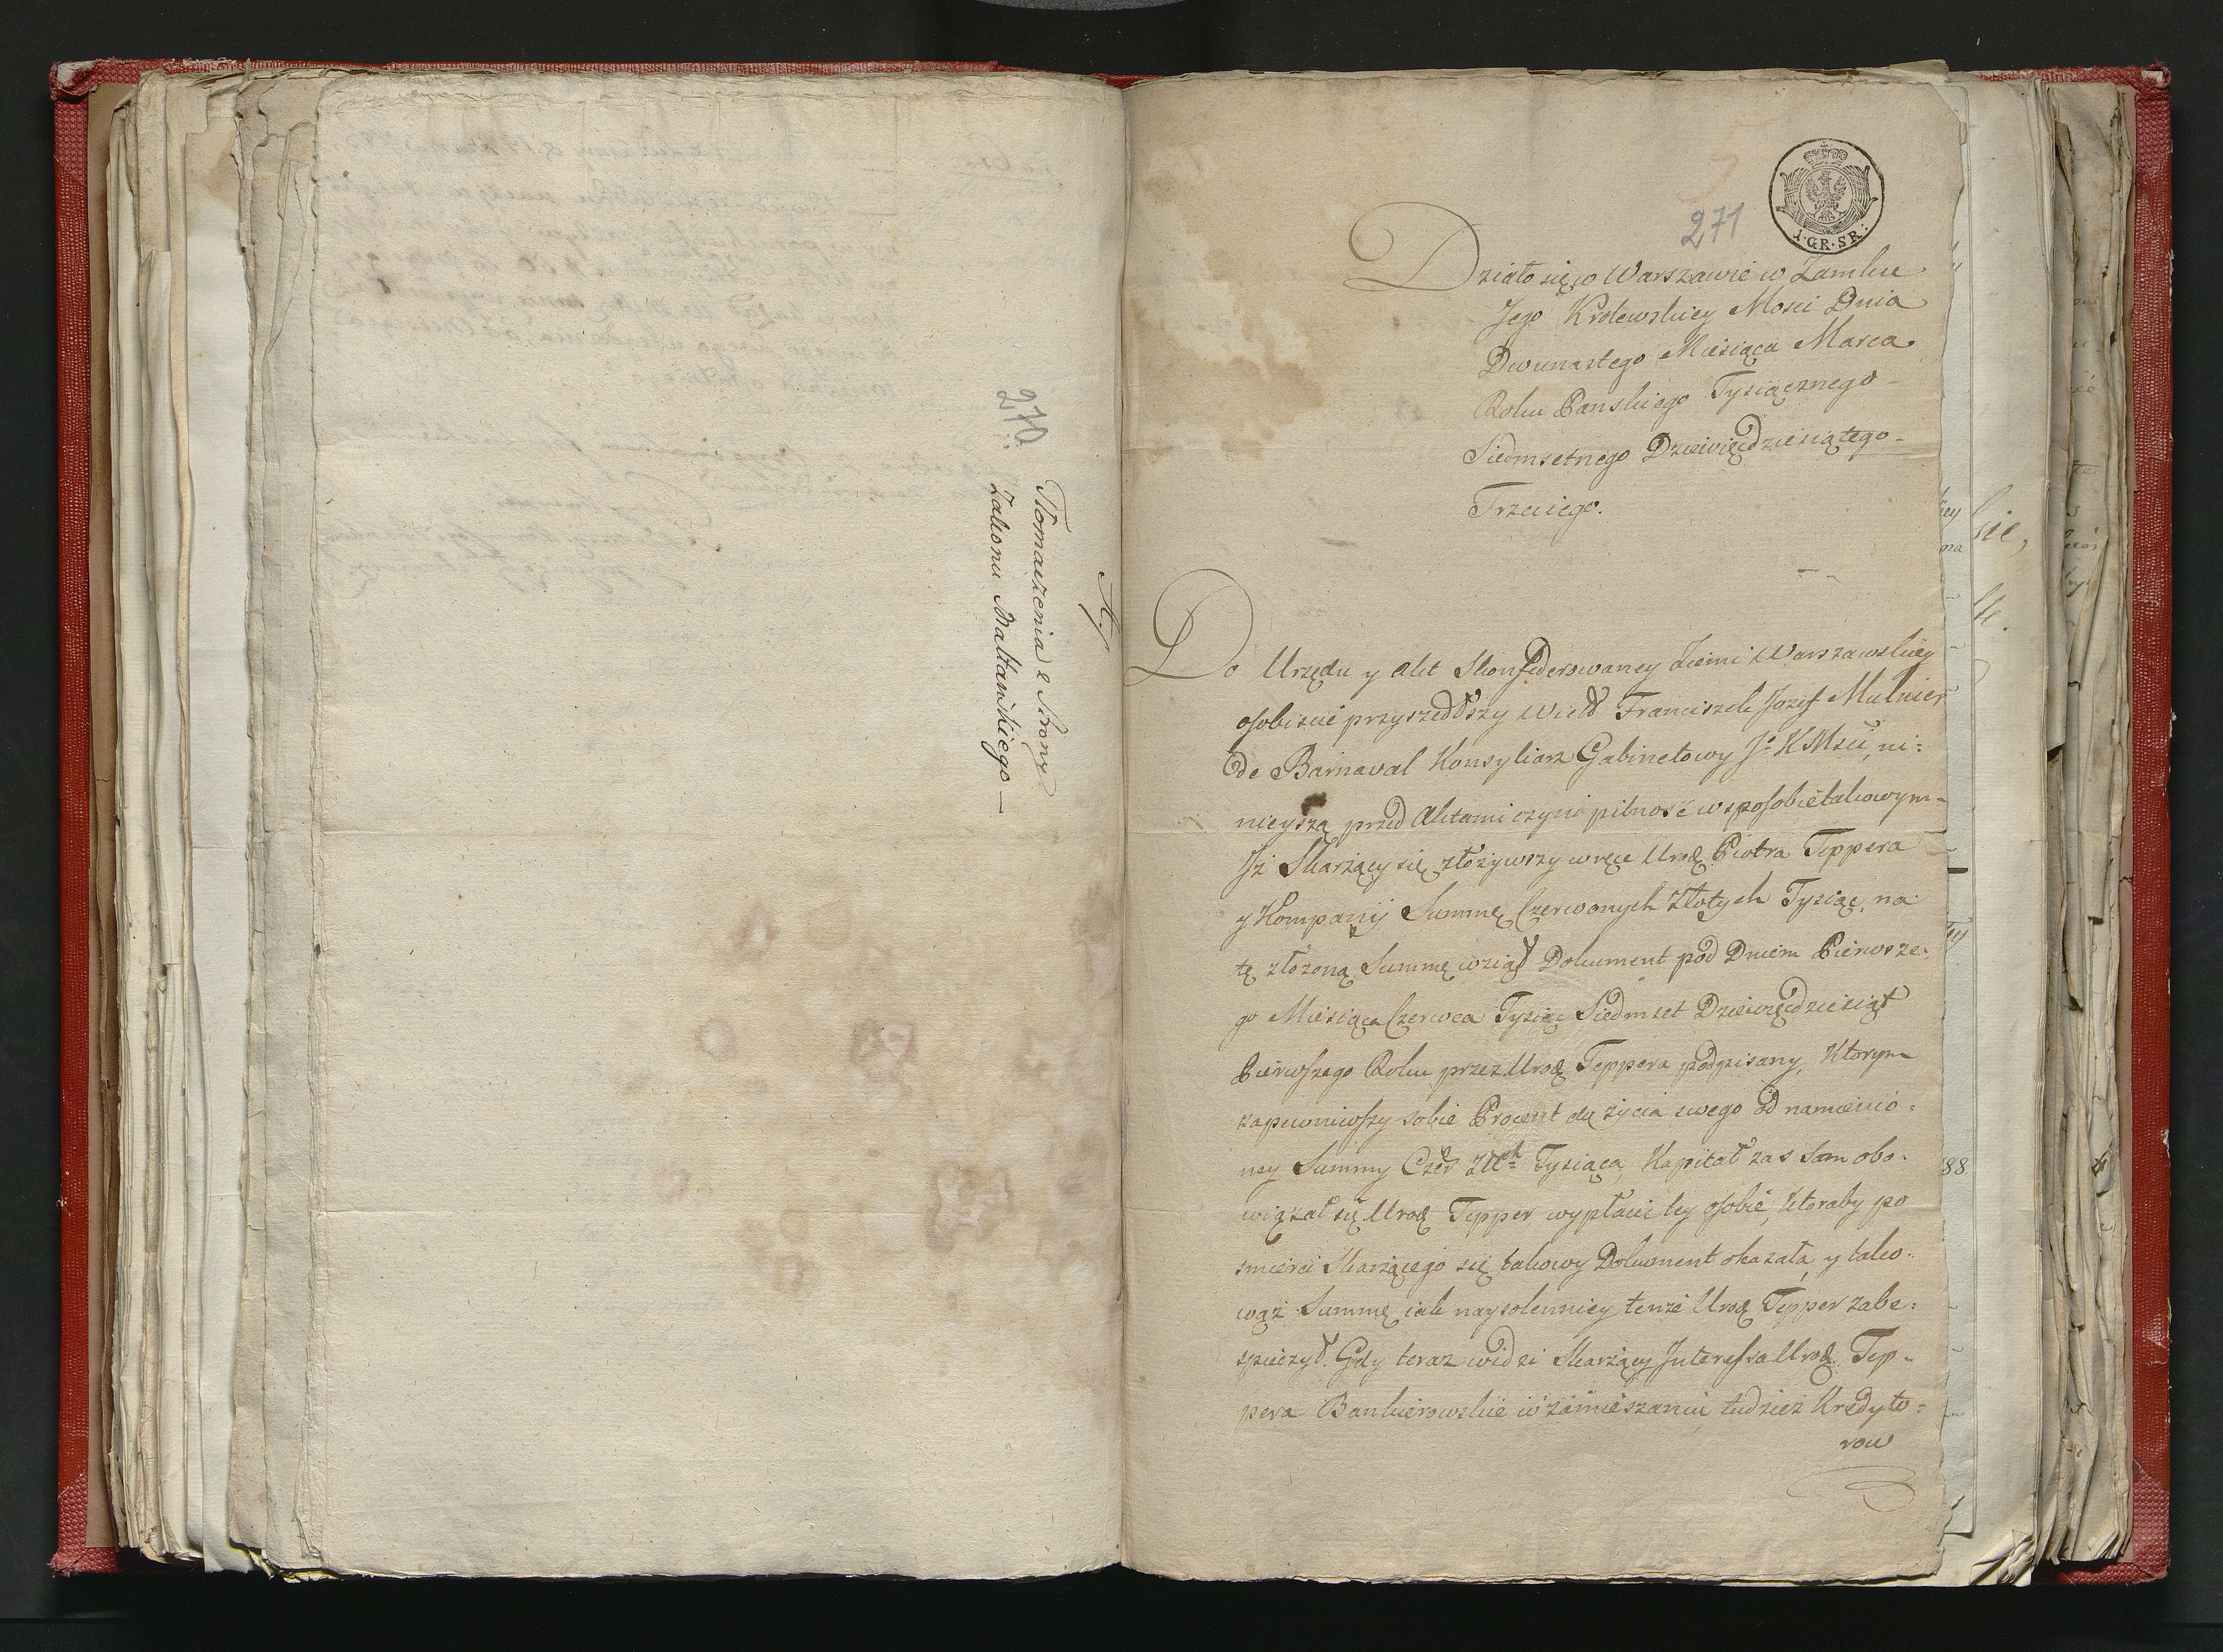 270
A.
Tłomaczenia z Strony
Zakonu Maltańskiego —
271
1·GR·SR:
Działo się w Warszawie w Zamku
Jego Krolewskiey Mosci Dnia
Dwunastego Miesiąca Marca
Roku Panskiego Tysiącznego
Siedmsetnego Dziewięćdziesiątego
Trzeciego.
Do Urzędu y Akt Skonfederowaney Ziemi Warszawskiey
osobiscie przyszedłszy Wield Franciszek Jozef Mulnier
de Barnaval Konsyliarz Gabinetowy Jo KMsci, ni:
nieyszą przed Aktami czyni pilność w sposobie takowym
Jż Skarżący się złożywszy w ręce Urodz Piotra Teppera
y Kompanij Summę Czerwonych Złotych Tysiąc, na
tę złożoną Summę wziął Dokument pod Dniem Pierwsze:
go Miesiąca Czerwca Tysiąc Siedmset Dziewięćdziesiąt
Pierwszego Roku przez Urodz Teppera podpisany, Ktorym
zapewniwszy sobie Procent do życia swego od namienio:
ney Summy Czer Złch Tysiąca, Kapitał zas sam obo:
wiązał się Urodz Tepper wypłacić tey osobie, ktoraby po
smierci Skarżącego się takowy Dokument okazała, y tako:
wąż Summę iak naysolenniey tenże Urodz Tepper zabe:
spieczył. Gdy teraz widzi Skarżący Interessa Urodz Tep:
pera Bankierowskie w zamieszaniu, tudzież Kredyto:
row